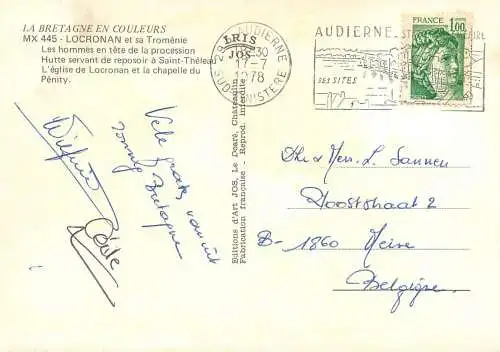 LA BRETAGNE EN COULEURS
MX 445 - LOCRONAN et sa Troménie
Les hommes en tête de la procession
Hutte servant de reposoir à Saint-Théleau
L'église de Locronan et la chapelle du
Pénity.
IRIS
JOS
29 AUDIERNE
17-7
1978
SUD FINISTERE
AUDIERNE
SES SITES
FRANCE
1,00
Editions d'Art JOS, Le Doaré, Châteaulin
Fabrication française - Reprod. interdite
Vele groeten vanuit
zonnig Bretagne
Wilfried
Dhr & Mevr. L. Sannen
Dooststraat 2
B-1860 Meise
Belgique.